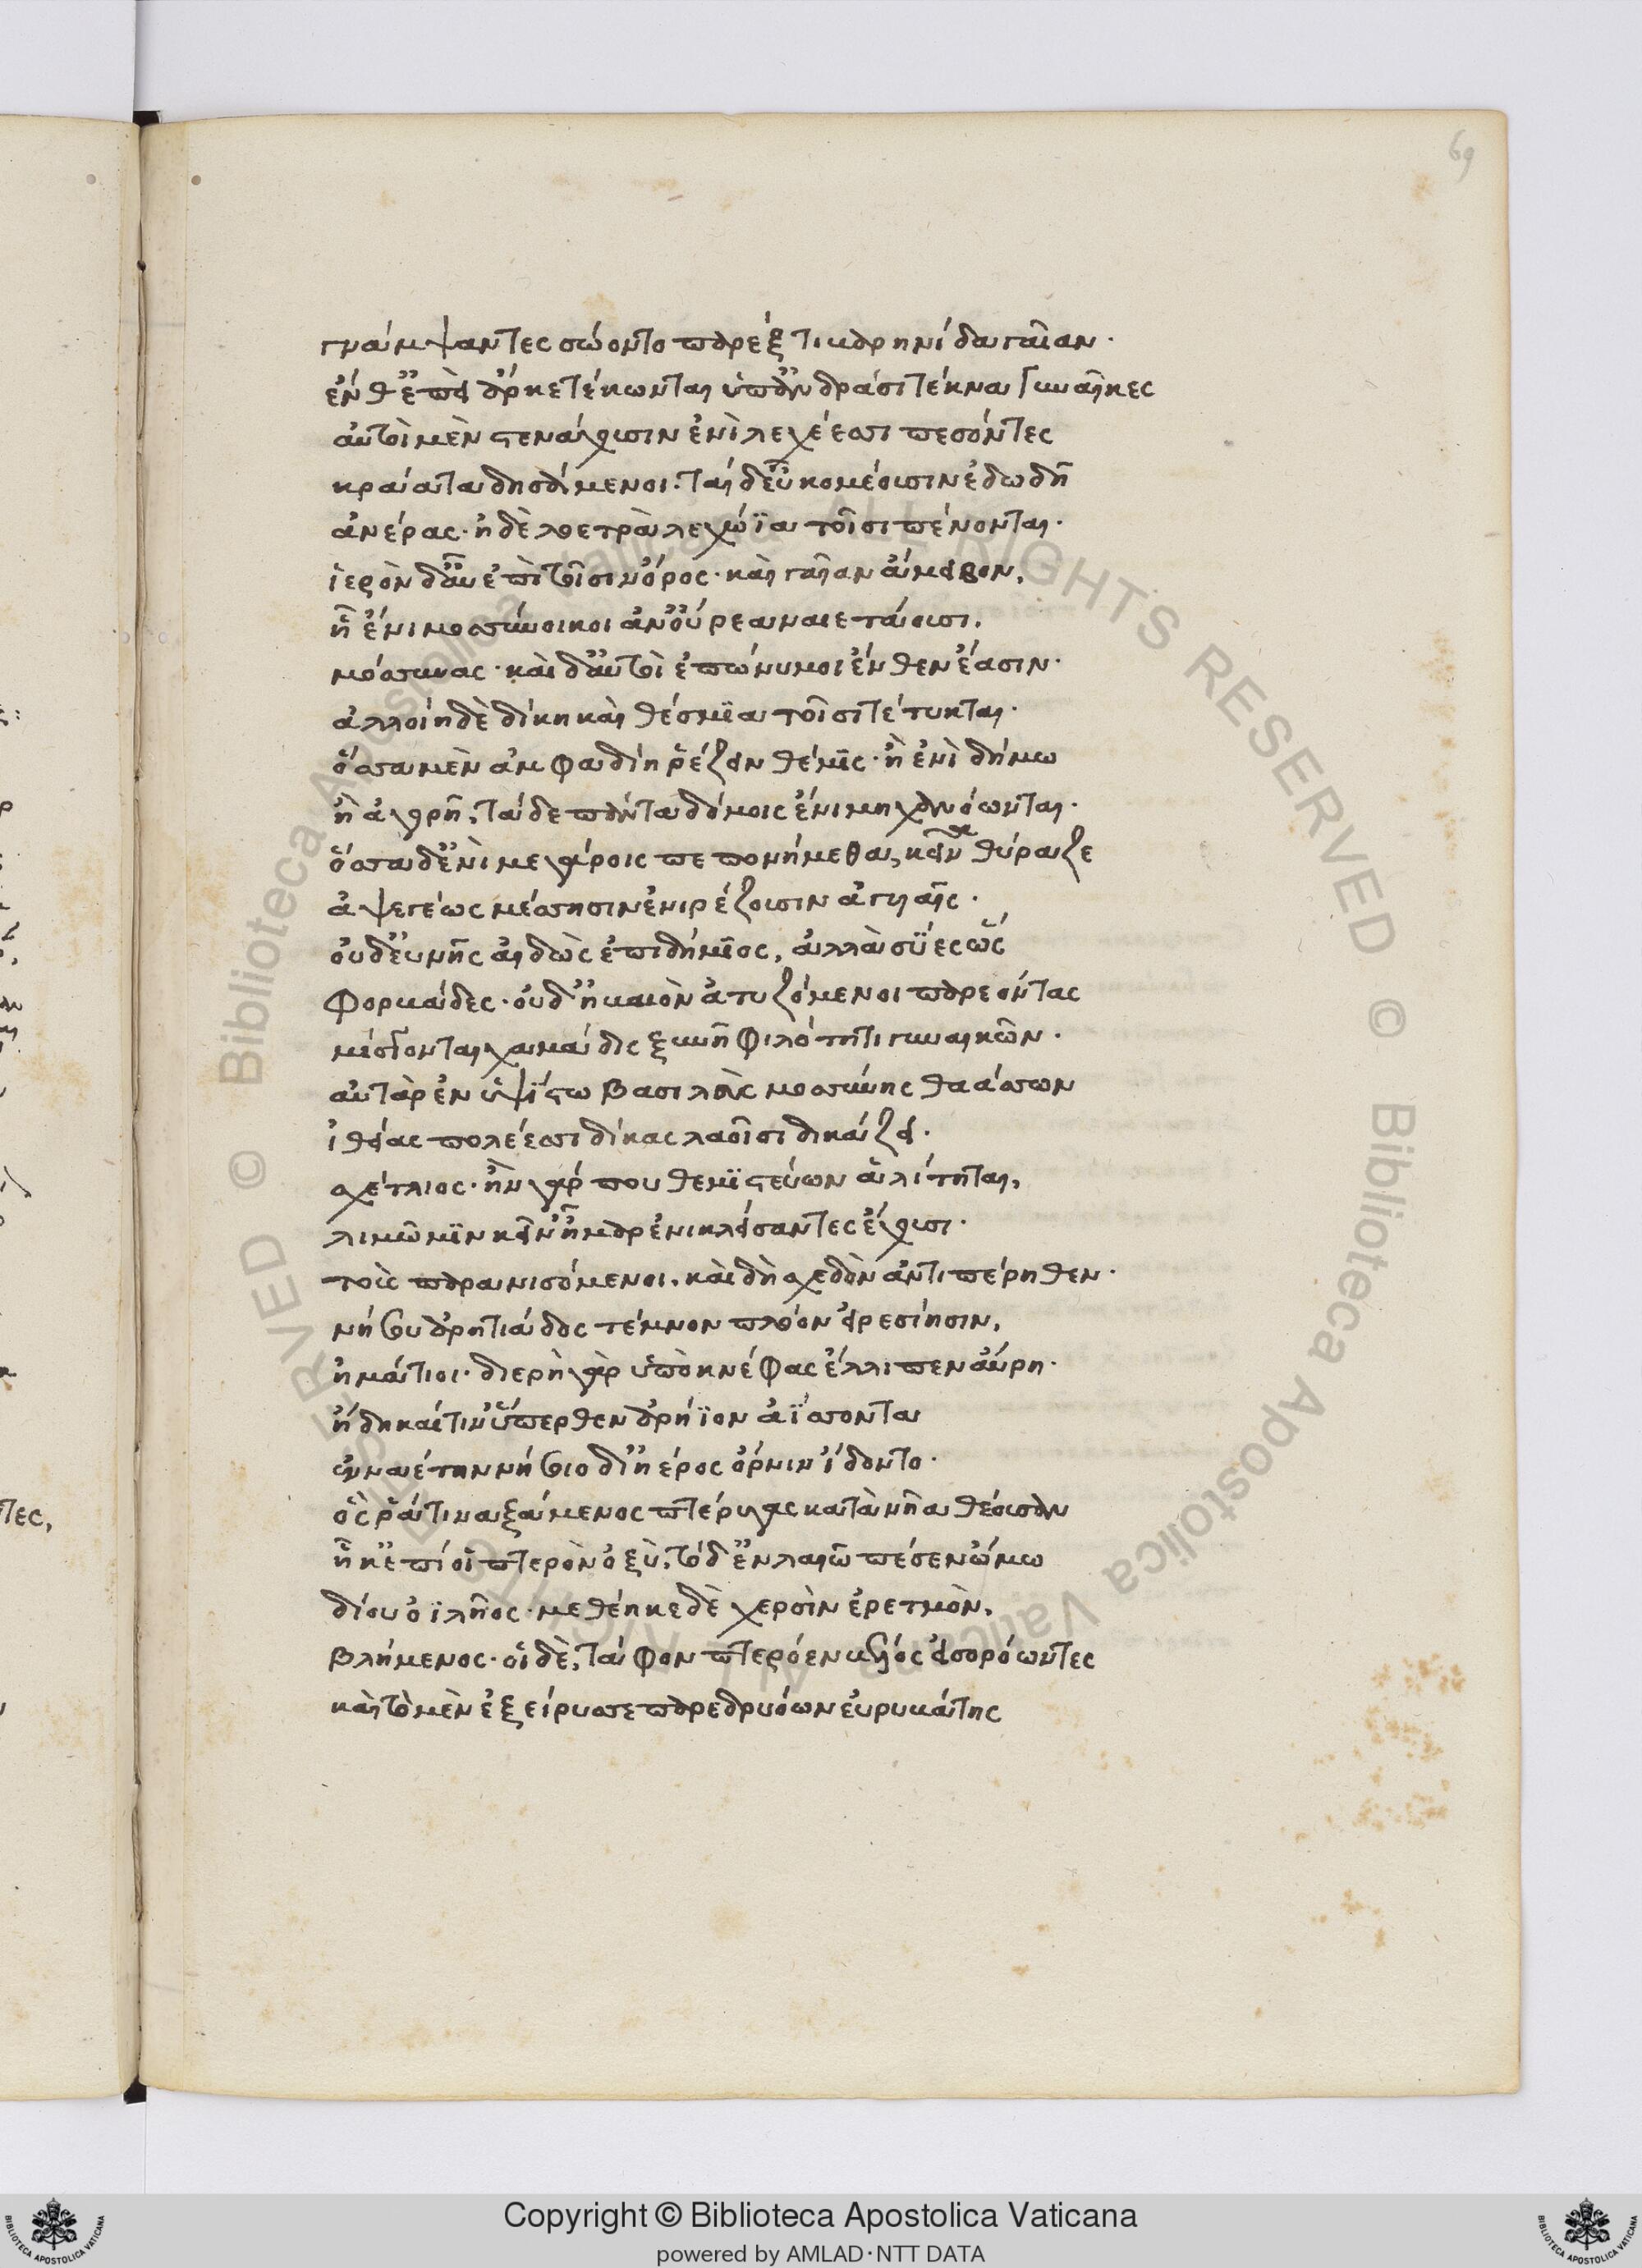 69
γνάμψαντες σώοντο παρὲξ τιβαρηνίδα γαῖαν·
ἔνθ' ἐπεὶ ἄρ κε τέκωνται ὑπ' ἀνδράσι τέκνα γυναῖκες
αὐτοὶ μὲν στενάχουσιν ἐνὶ λεχέεσσι πεσόντες
κράατα δησάμενοι· ταὶ δ' εὖ κομέουσιν ἐδωδῆ
ἀνέρας· ἠδὲ λοετρὰ λεχώϊα τοῖσι πένονται·
ἱερὸν δ' αὖ ἐπὶ τοῖσιν ὄρος· καὶ γαῖαν ἄμειβον,
ἧ ἔνι μοσσύνοικοι ἀν' οὔρεα ναιετάουσι,
μόσσυνας· καὶ δ' αὐτοὶ ἐπώνυμοι ἔνθεν ἔασιν·
ἀλλοίη δὲ δίκη καὶ θέσμια τοῖσι τέτυκται·
ὅσσα μὲν ἀμφαδίη ῥέζειν θέμις· ἢ ἐνὶ δήμω
ἢ ἀγορῆ, τάδε πάντα δόμοις ἔνι μηχανόωνται·
ὅσσα δ' ἐνὶ μεγάροις πεπονήμεθα, κεῖνα θύραζε
ἀψεγέως μέσσησιν ἐνὶ ῥέζουσιν ἀγυιαῖς·
οὐδ' εὐνῆς αἰδὼς ἐπιδήμιος, ἀλλὰ σύες ὣς
φορβάδες· οὐδ' ἠβαιὸν ἀτυζόμενοι παρεόντας
μίσγονται χαμάδις ξυνῆ φιλότητι γυναικῶν·
αὐτὰρ ἐν ὑψίστω βασιλεὺς μοσσύνης θαάσσων
ἰθείας πολέεσσι δίκας λαοῖσι δικάζει·
σχέτλιος· ἢν γάρ που θεμιστεύων ἀλίτηται,
λιμῶ μιν κεῖν' ἦμαρ ἐνικλείσαντες ἔχουσι·
τοὺς παρανισόμενοι· καὶ δὴ σχεδὸν ἀντιπέρηθεν·
νήσου ἀρητιάδος τέμνον πλόον εἰρεσίησιν,
ἠμάτιοι· διερὴ γὰρ ὑπὸ κνέφας ἔλλιπεν αὔρη·
ἤδη καί τιν' ὕπερθεν ἀρήϊον ἀΐσσοντα
ἐνναέτην νήσοιο δι' ἠέρος ὄρνιν ἴδοντο·
ὅς ῥά τιναξάμενος πτέρυγας κατὰ νῆα θέουσαν
ἧκ' ἐπί οἱ πτερὸν ὀξὺ, τὸ δ' ἐν λαιῶ πέσεν ὤμω
δίου ὀϊλῆος· μεθέηκε δὲ χερσὶν ἐρετμὸν,
βλήμενος· οἱ δὲ, τάφον πτερόεν βέλος εἰσορόωντες
καὶ τὸ μὲν ἐξείρυσσε παρεδριόων εὐρυβάτης
Copyright © Biblioteca Apostolica Vaticana
powered by AMLAD·NTT DATA